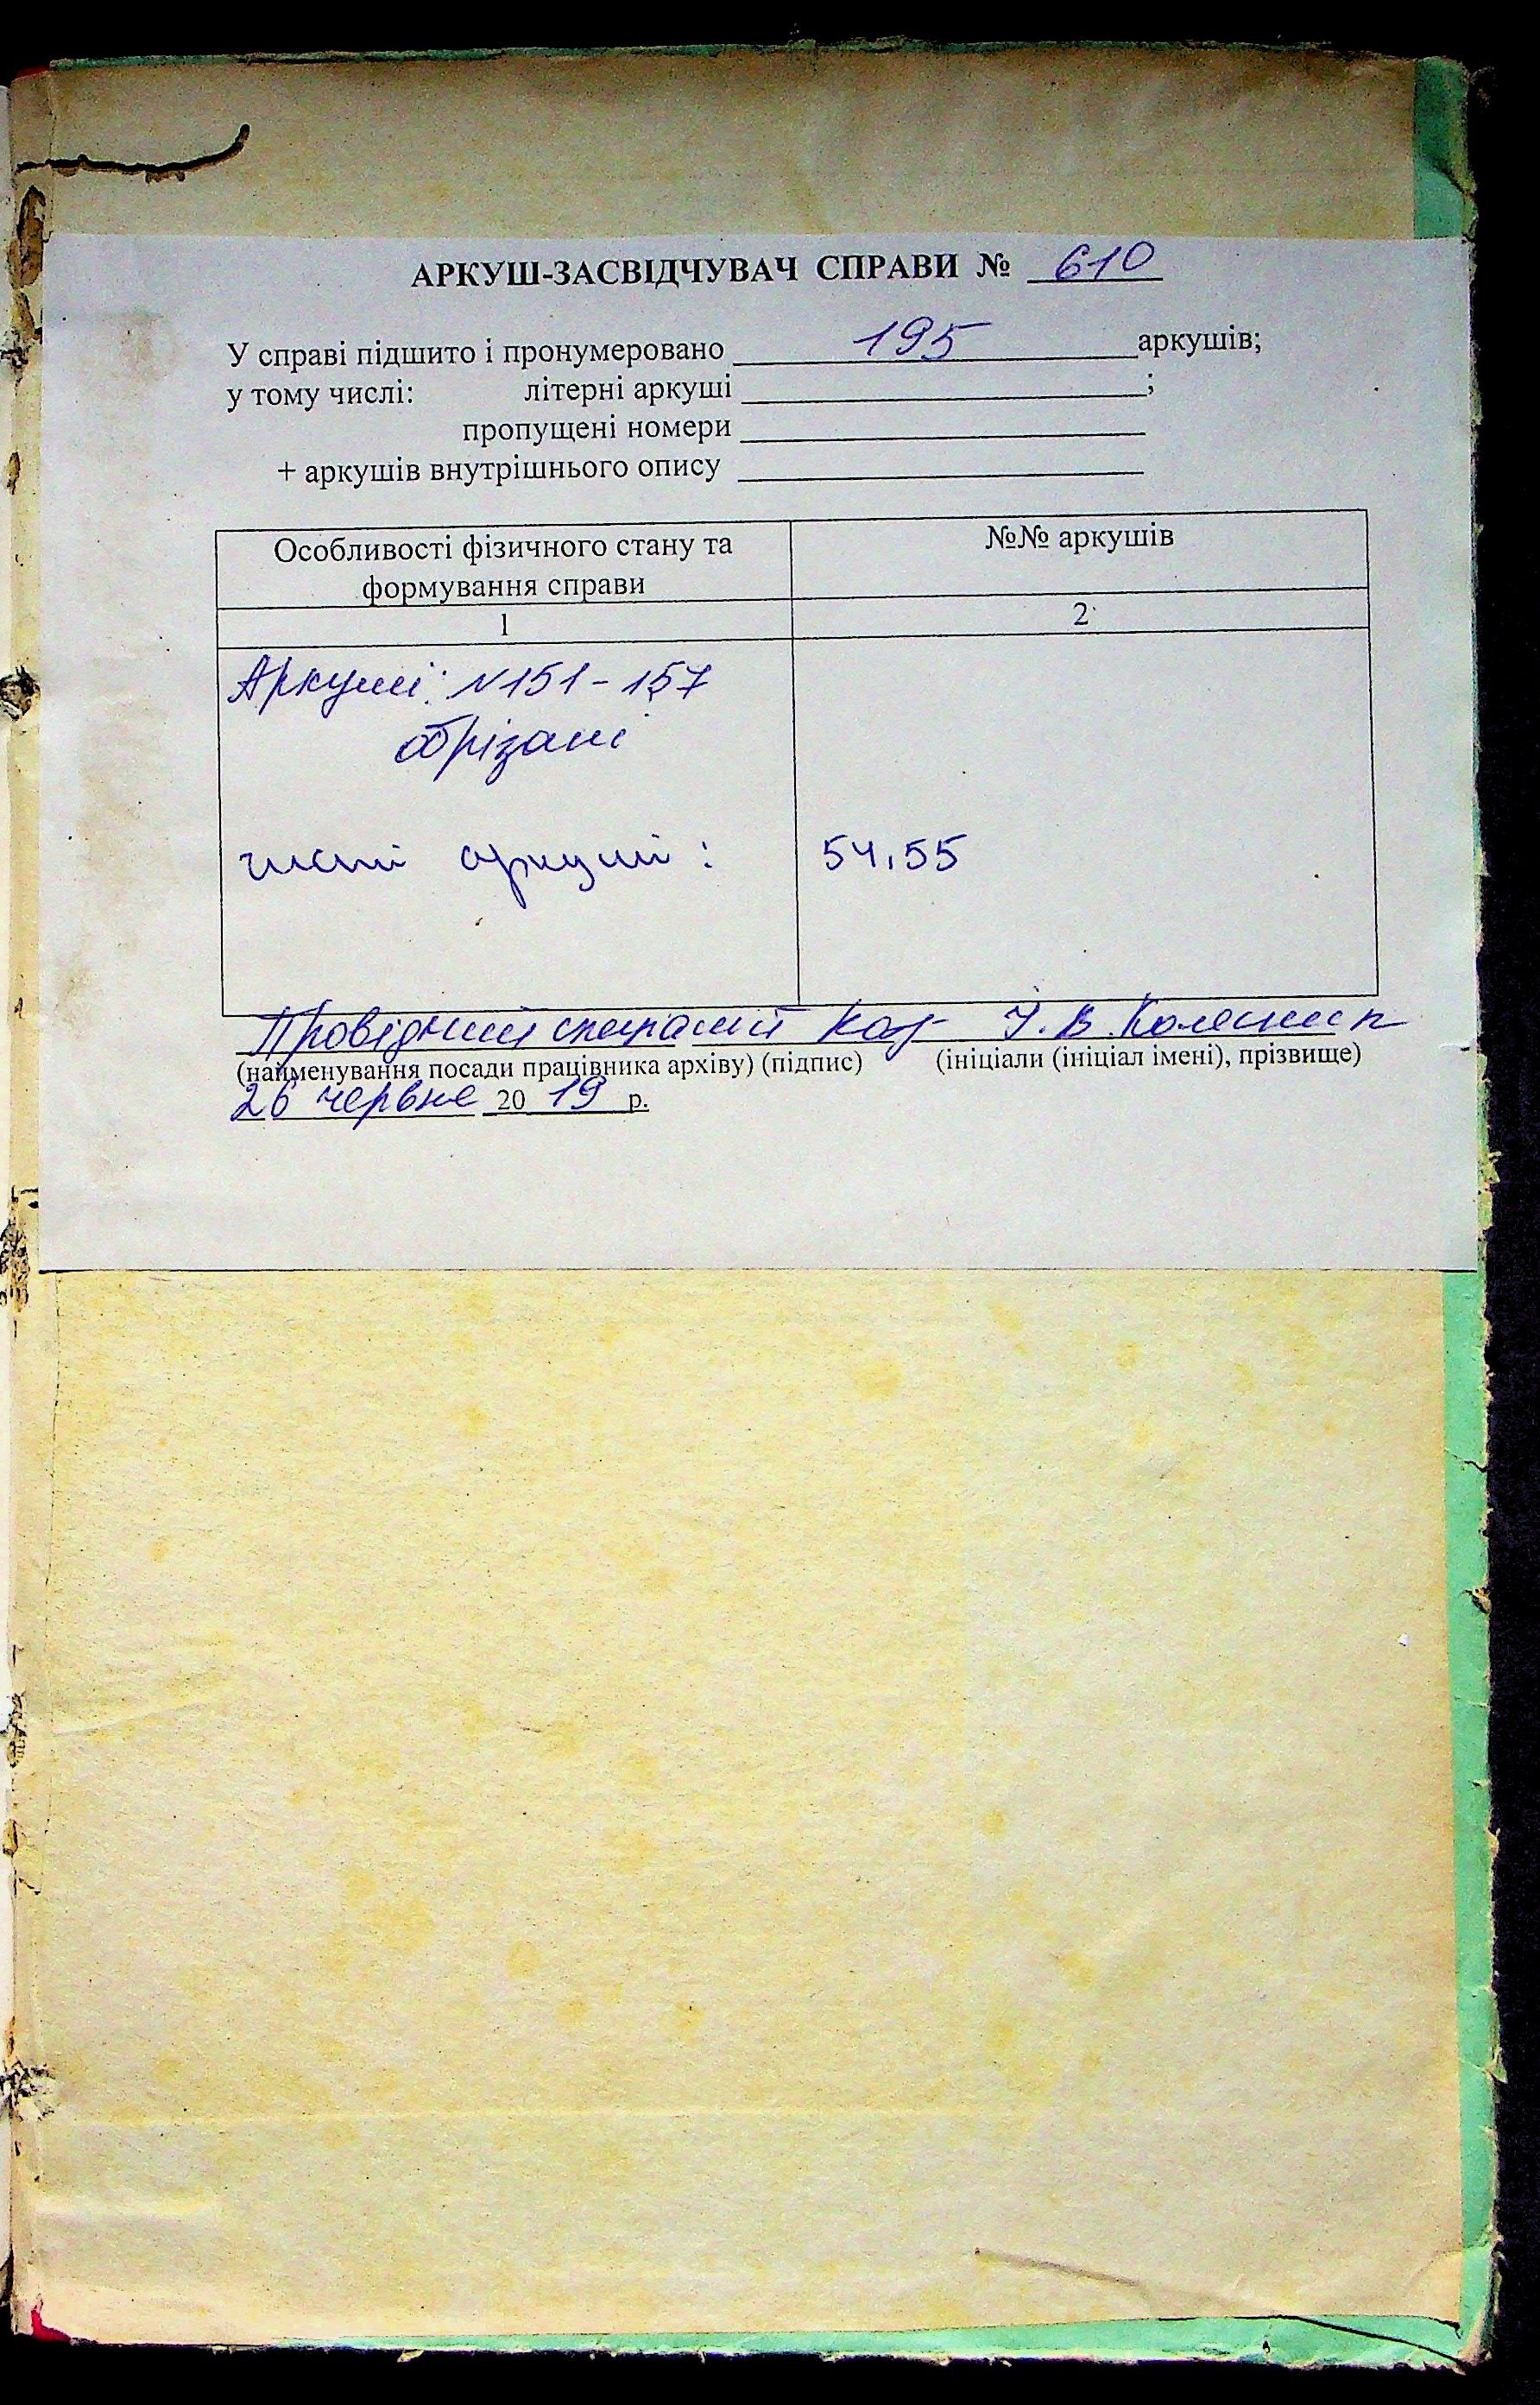 АРКУШ-ЗАСВІДЧУВАЧ СПРАВИ № 610
У справі підшито і пронумеровано 195 аркушів;
у тому числі: літерні аркуші ;
пропущені номери
+ аркушів внутрішнього опису
Особливості фізичного стану та формування справи
№№ аркушів
1
2
Аркуші: N 151 - 157
обрізані
чисті аркуші :
54,55
Провідний спеціаліст
(найменування посади працівника архіву) (підпис) (ініціали (ініціал імені), прізвище)
26 червня 2019 р.